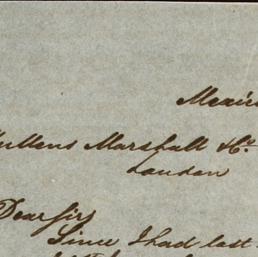 Mullens Marshall & Co.
London
Dear Sirs
Since I had last